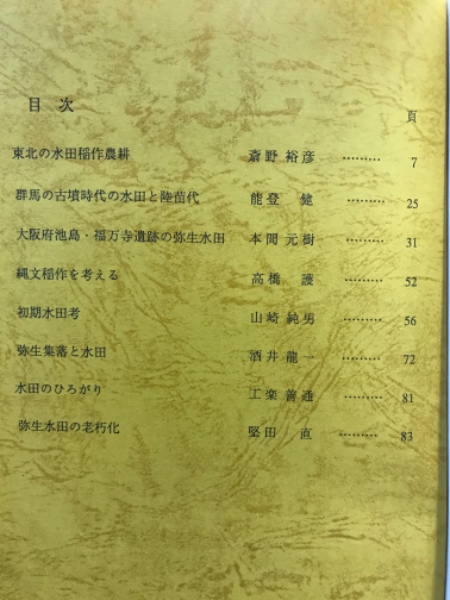 目次
頁
東北の水田稲作農耕 斎野裕彦 ……… 7
群馬の古墳時代の水田と陸苗代 能登 健 ……… 25
大阪府池島・福万寺遺跡の弥生水田 本間元樹 ……… 31
縄文稲作を考える 高橋 護 ……… 52
初期水田考 山崎純男 ……… 56
弥生集落と水田 酒井龍一 ……… 72
水田のひろがり 工楽善通 ……… 81
弥生水田の老朽化 堅田 直 ……… 83